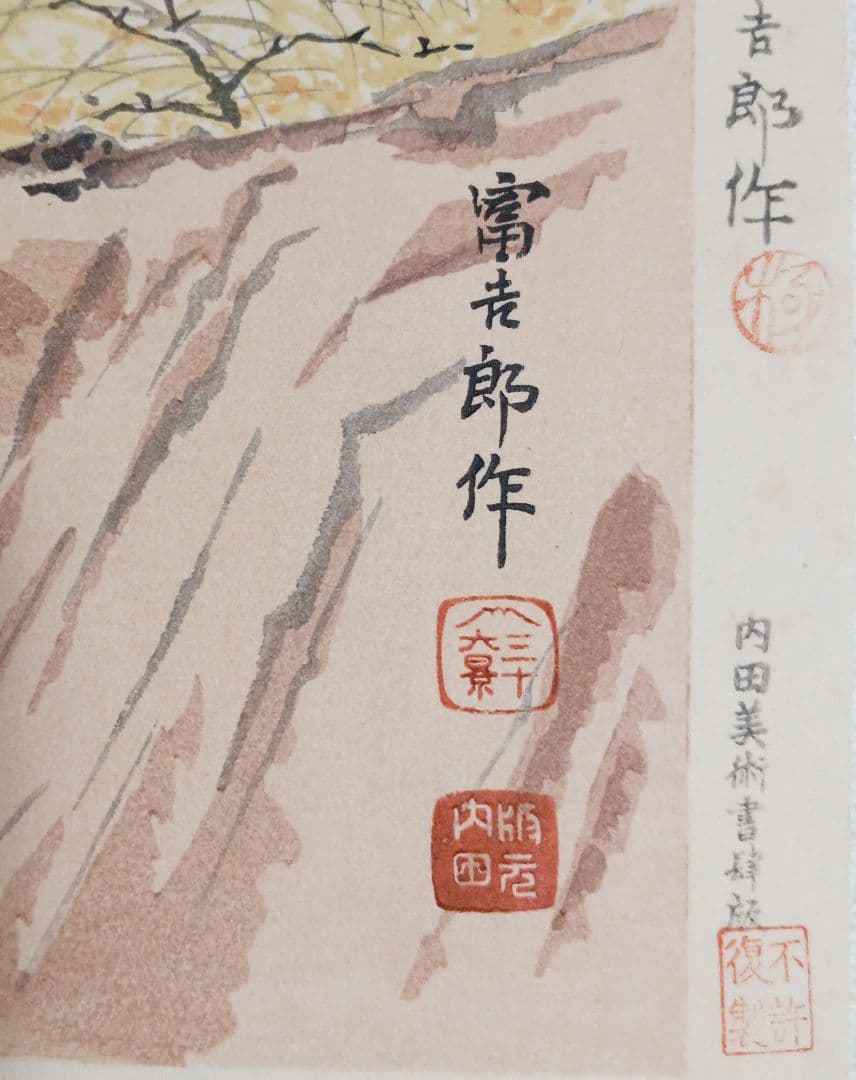 吉郎作
極
内田美術書肆版
不許
復製
富吉郎作
三十
六景
版元
内田